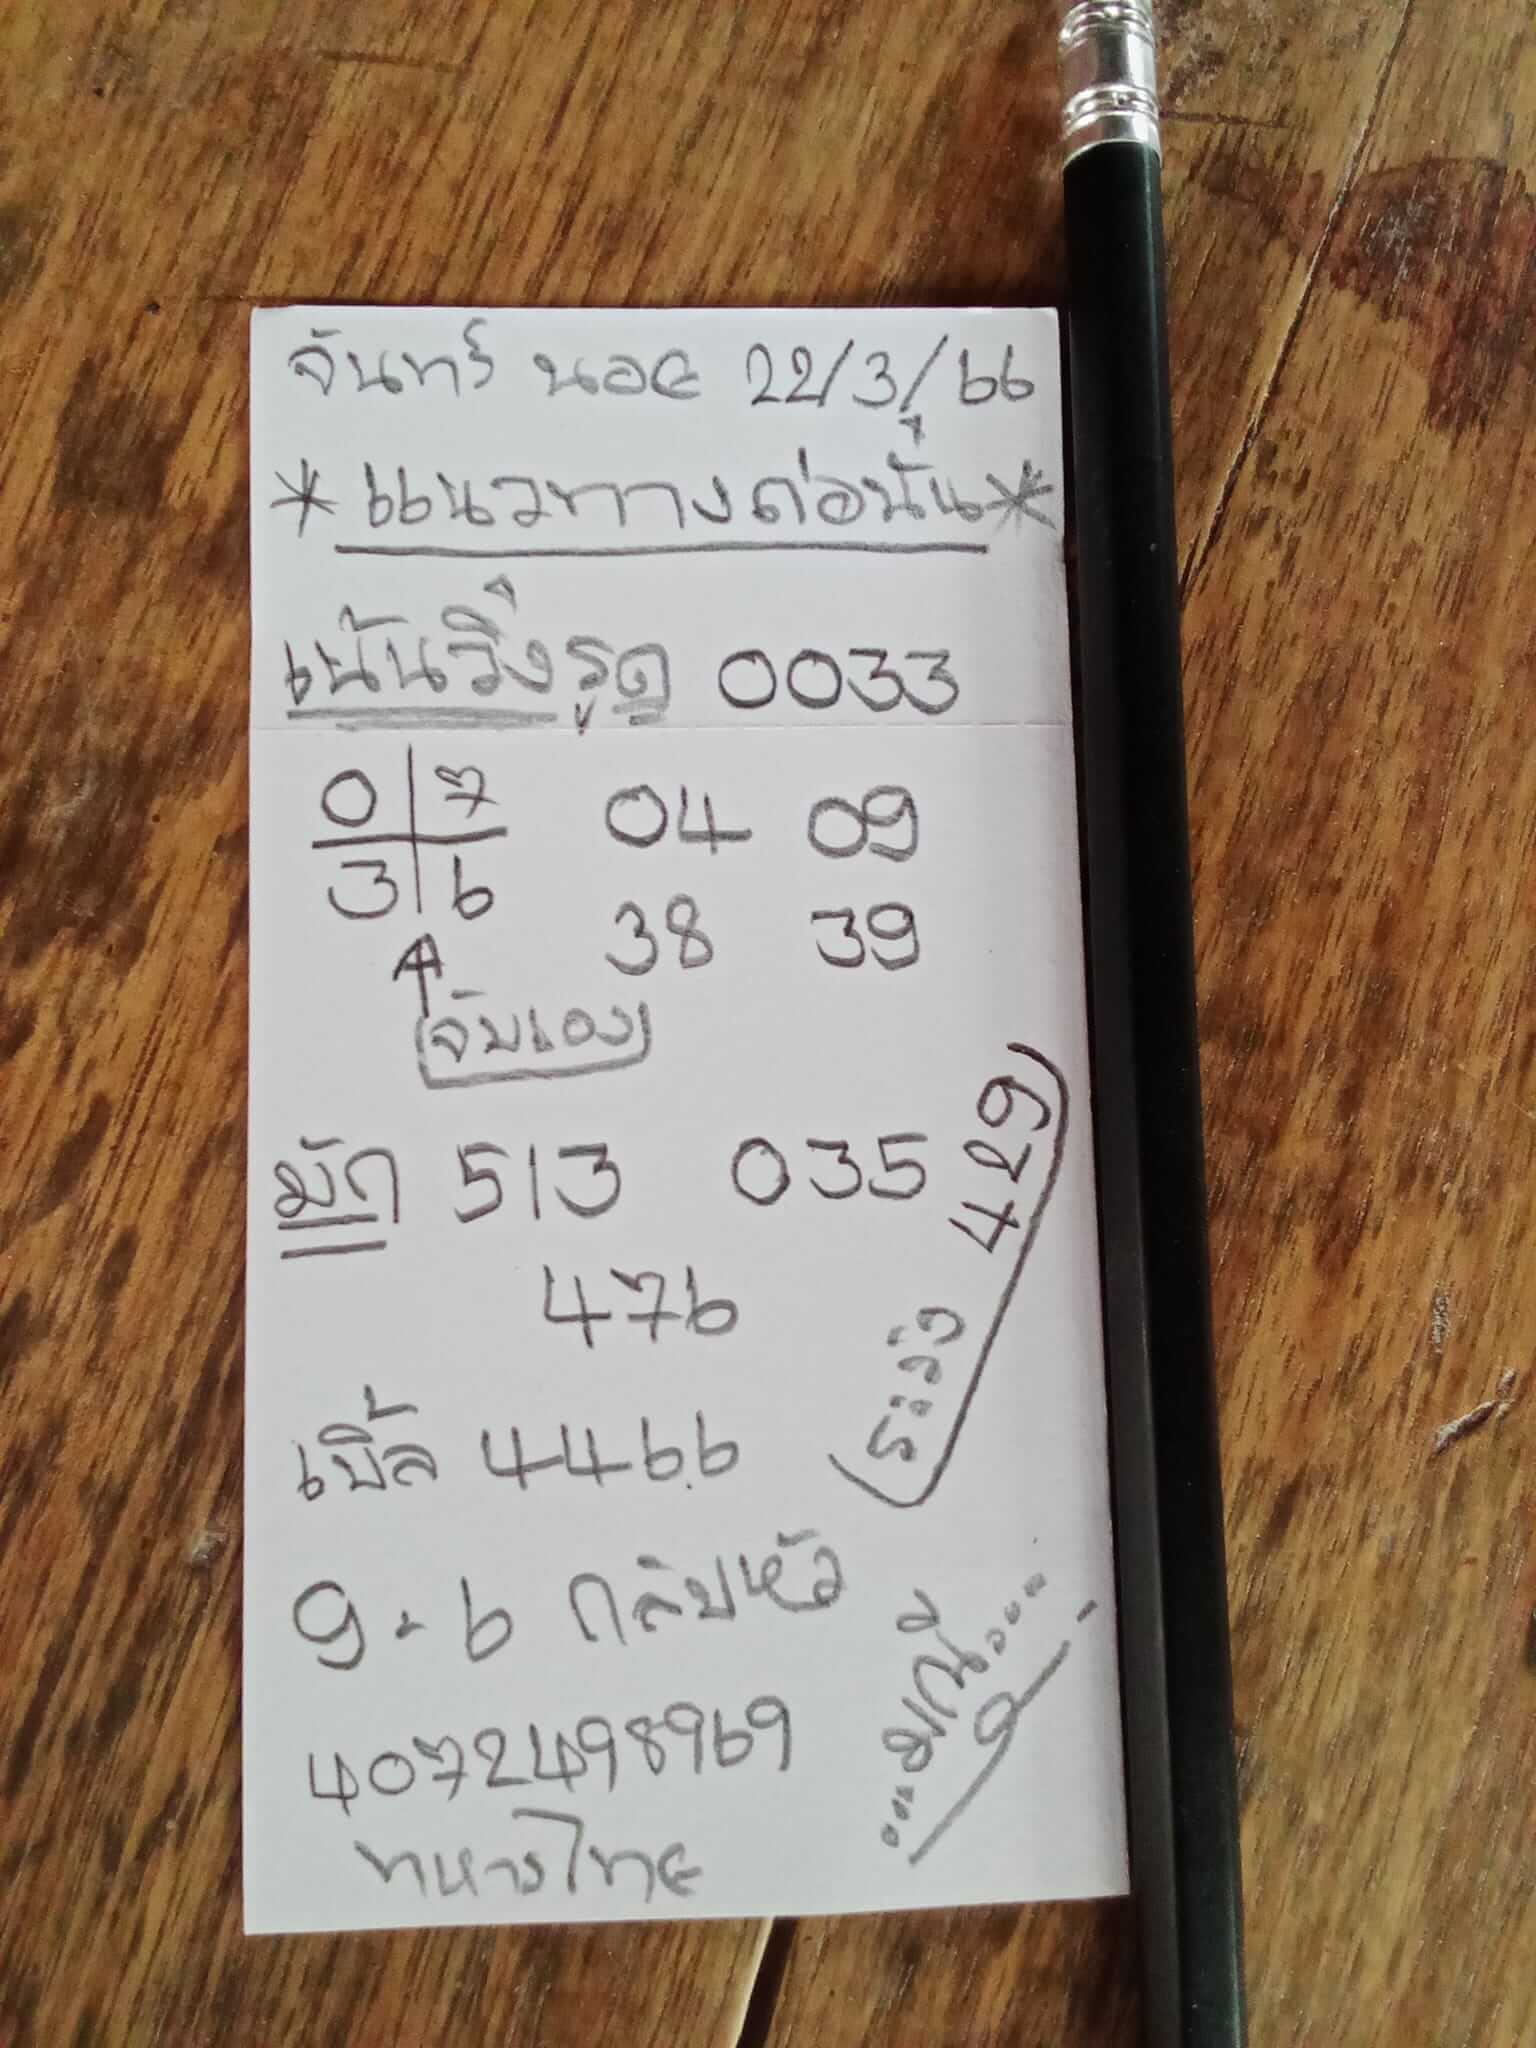 จันทร์ นอย 22/3/66
* แนวทางต่อนั่น *
เน้นวิ่งรูด 0033
0 7 04 09
3 6 38 39
จับเอง
มัด 513 035
476
ระวัง 429
เบิ้ล 4466
9-6 กลับหัว
4072498969
ทหารไทย
...มณี...